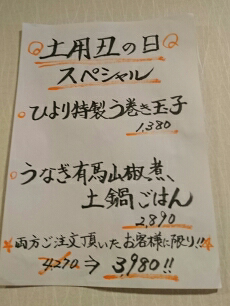 土用丑の日
スペシャル
・ひより特製う巻き玉子
1,380
・うなぎ有馬山椒煮、
土鍋ごはん
2,890
★両方ご注文頂いたお客様に限り!!★
4,270⇒3,980!!